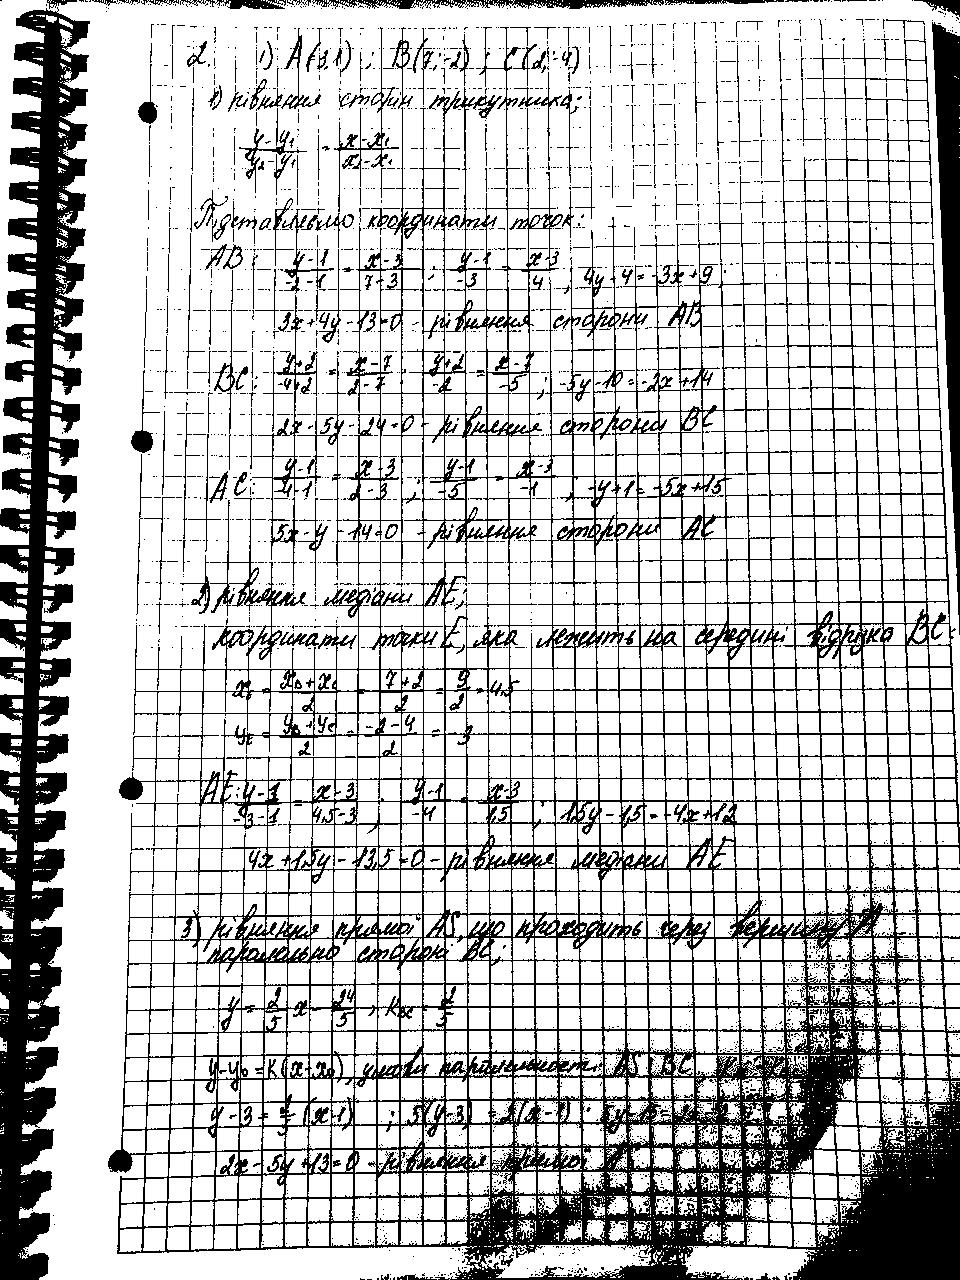 2. 1) A(3,1) ; B(7;-2) ; C(2;-4)
1) рівняння сторін трикутника;
y-y₁/y₂-y₁ = x-x₁/x₂-x₁
Підставляємо координати точок:
AB: y-1/-2-1 = x-3/7-3 ; y-1/-3 = x-3/4 ; 4y-4=-3x+9;
3x+4y-13=0 - рівняння сторони AB
BC: y+2/-4+2 = x-7/2-7 ; y+2/-2 = x-7/-5 ; -5y-10=-2x+14
2x-5y-24=0 - рівняння сторони BC
AC: y-1/-4-1 = x-3/2-3 ; y-1/-5 = x-3/-1 ; -y+1=-5x+15
5x-y-14=0 - рівняння сторони AC
2) рівняння медіани AE;
координати точки E, яка лежить на середині відрізка BC:
x = x_B+x_C/2 = 7+2/2 = 9/2 = 4,5
y_E = y_B+y_C/2 = -2-4/2 = -3
AE: y-1/-3-1 = x-3/4,5-3 ; y-1/-4 = x-3/1,5 ; 1,5y-1,5=-4x+12
4x+1,5y-13,5=0 - рівняння медіани AE
3) рівняння прямої AS, що проходить через вершину A
паралельно стороні BC;
y = 2/5 x - 24/5 ; K_BC = 2/5
y-y₀=K(x-x₀), умови паралельності AS BC
y-3= (x-1) ; 5(y-3) = 2(x-1) ;
2x-5y+13=0 - рівняння прямої